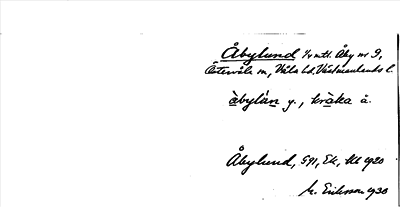 Åbylund ½ mtl. Åby nr 9,
Östervåla sn, Våla hd, Västmanlands l.
àbylán y., kràka å.
Åbylund, 591, Ek, 1920
M. Eriksson 1930